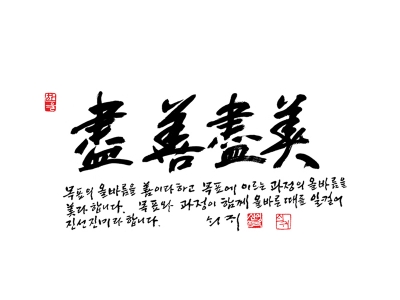 盡善盡美
목표의 올바름을 善이라하고 목표에 이르는 과정의 올바름을
美라 합니다. 목표와 과정이 함께 올바른 때를 일컬어
진선진미라 합니다. 쇠귀